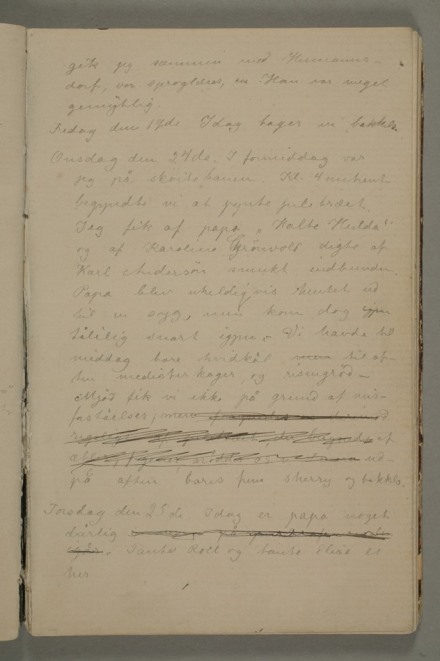 gik jeg sammen med Hermanns-
dorf, vor sproglærer, en Han var meget
gemytlig.
Fredag den 19de Idag bager vi bakkels.
Onsdag den 24de. I formiddag var
jeg på skøitebanen. Kl. 4 omtrent
begyndte vi at pynte juletræet.
Jeg fik af papa „Kalte Hulda"
og af Karoline Grönvold digte af
Karl Andersen smukt indbunden.
Papa blev uheldigvis hentet ud
til en syg, men kom dog
tålelig snart igjen. Vi havde til
middag bare hvidkål til af-
ten medisterkager, og risengrød
Mjød fik vi ikke på grund af mis-
forståelser, men
af
ud-
på aften bares frem sherry og bakkels.
Torsdag den 25de Idag er papa noget
dårlig
Tante Roll og tante Elise er
her